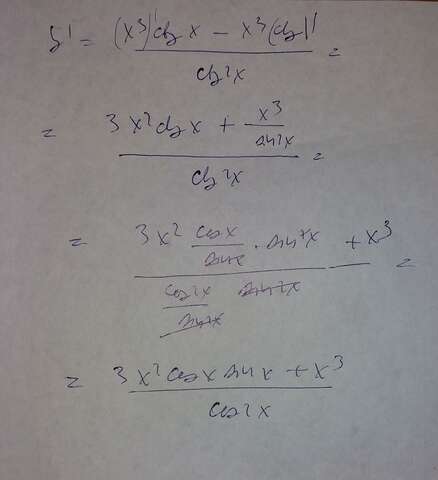 y' = ((x³)' ctg x - x³(ctg)') / (ctg²x) =
= (3x² ctg x + x³/(sin²x)) / (ctg²x) =
= (3x² cos x/sin x · sin²x + x³) / (cos²x/sin²x · sin²x) =
= (3x² cos x sin x + x³) / (cos²x)